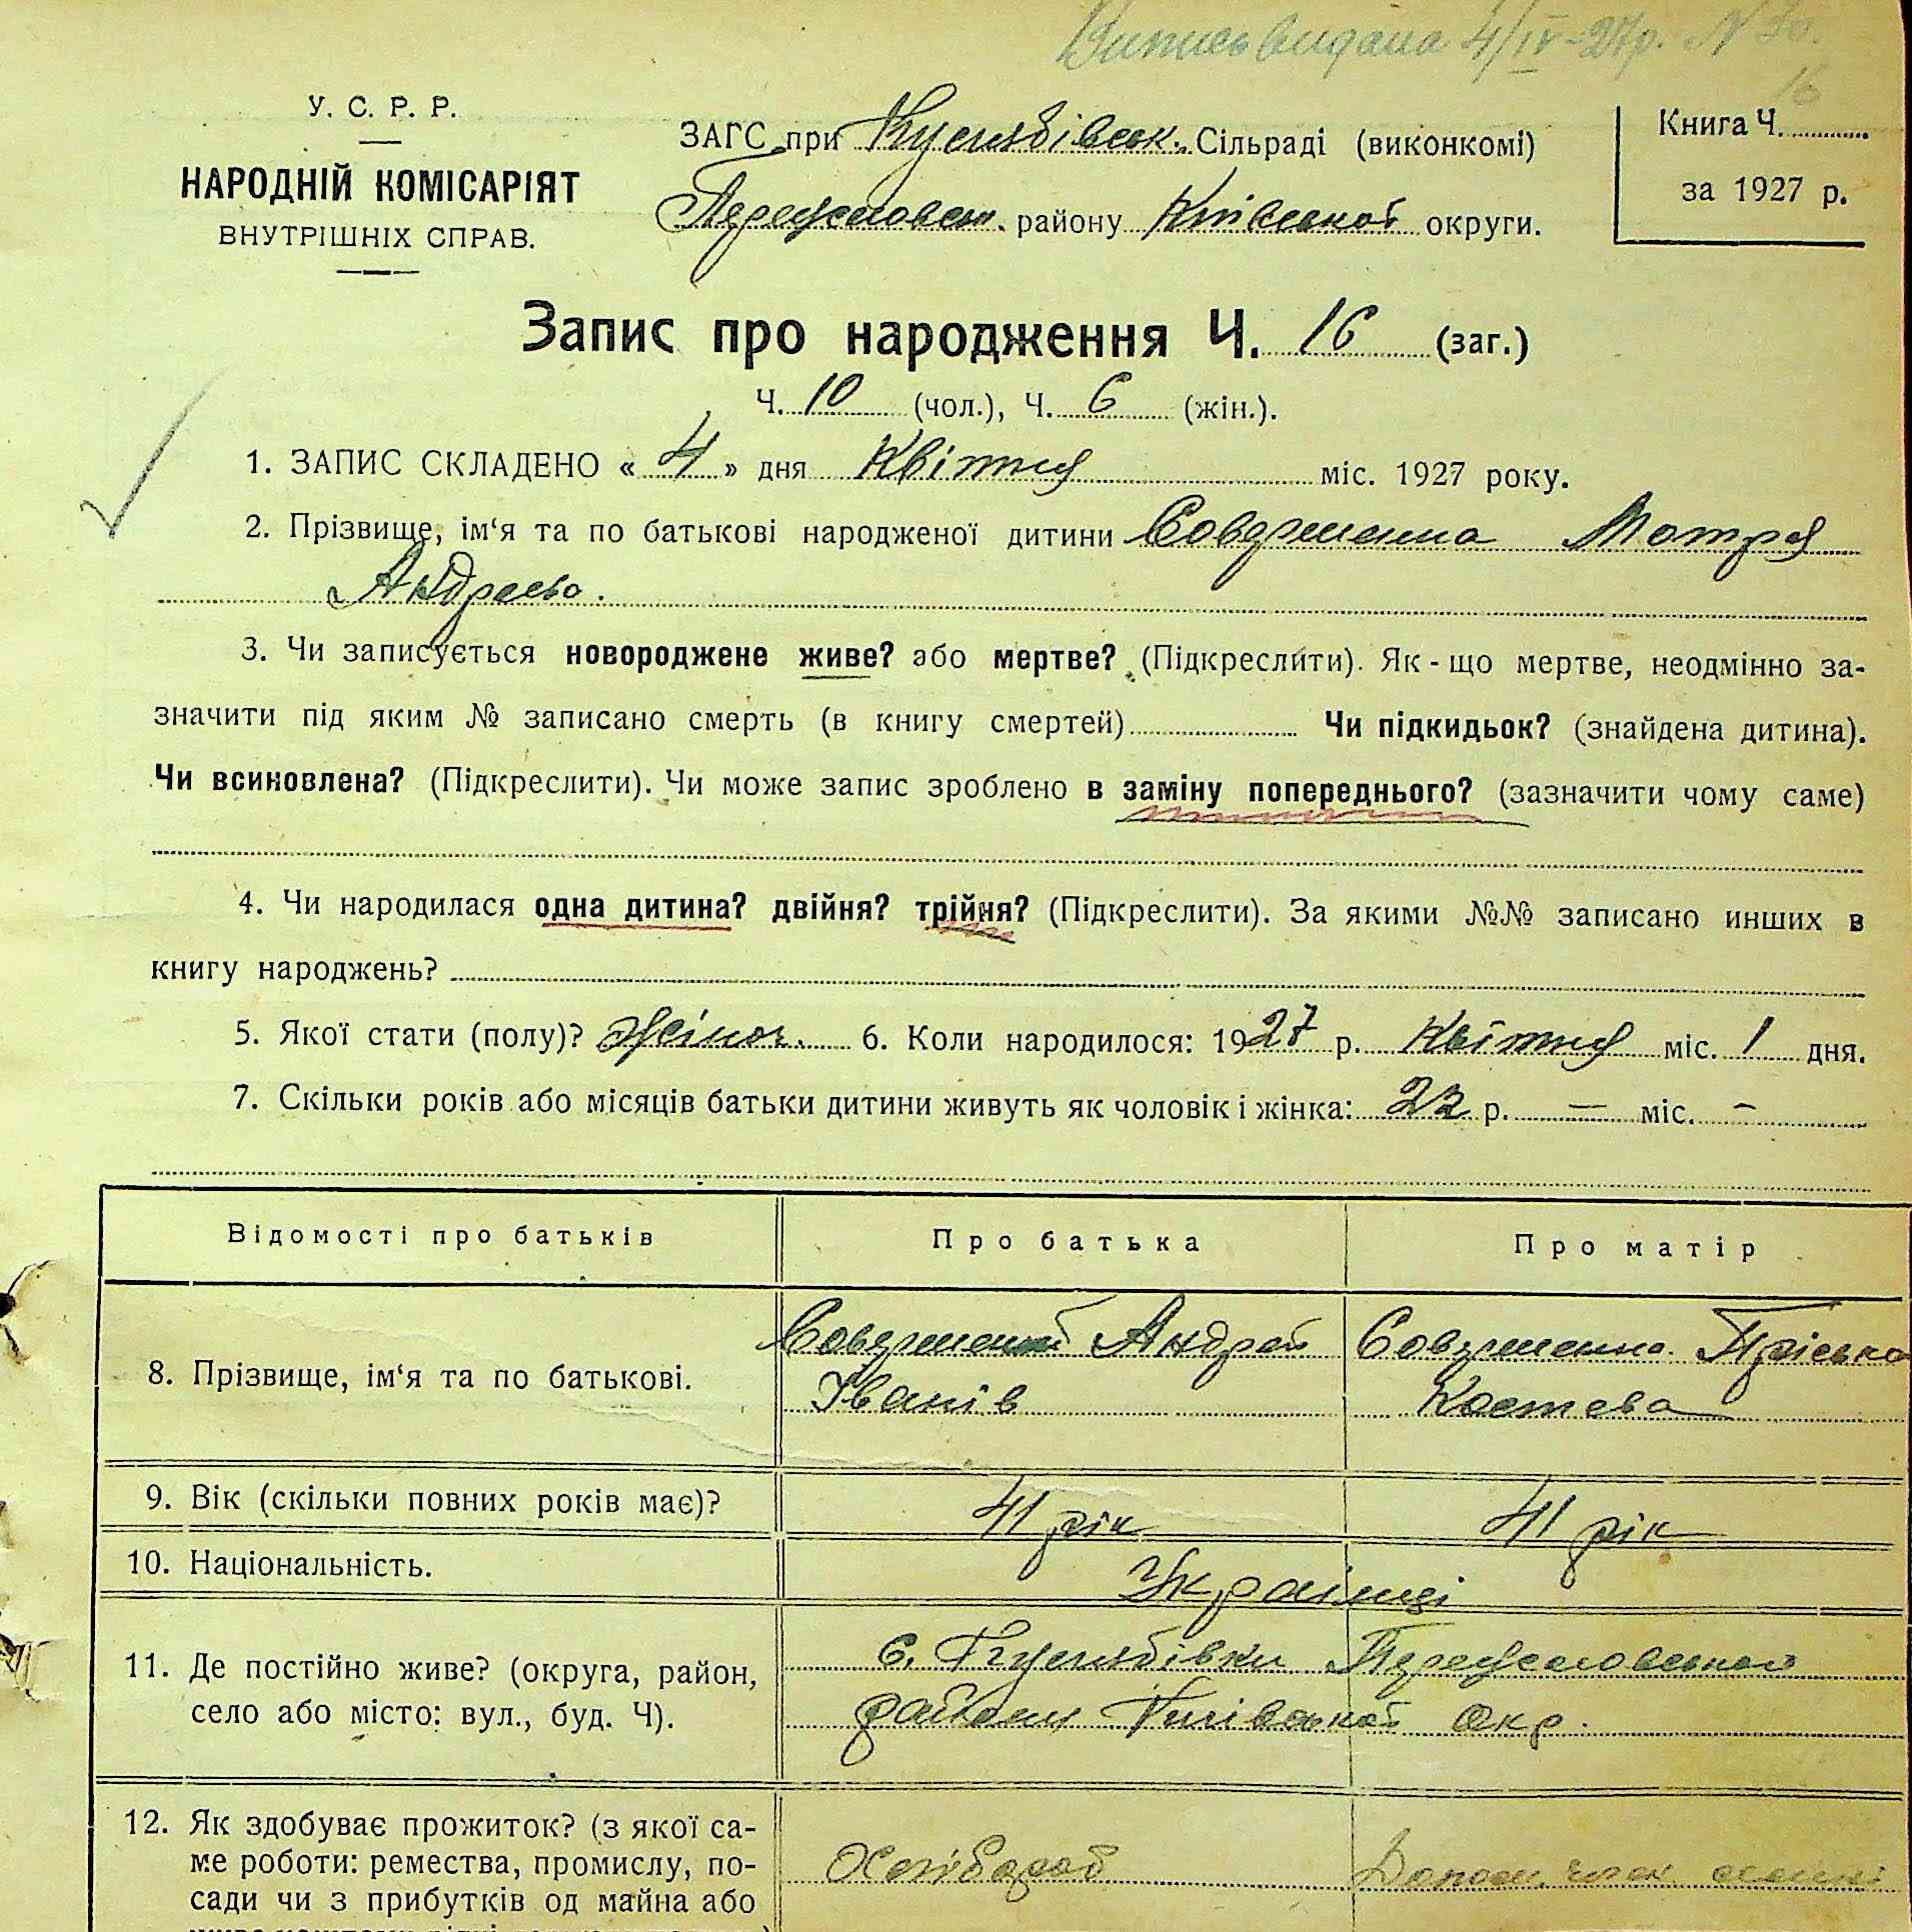 Випись видана 4/IV-27р. N 30.
16
У. С. Р. Р.
НАРОДНІЙ КОМІСАРІЯТ
ВНУТРІШНІХ СПРАВ.
ЗАГС при Сільраді (виконкомі)
району Київської округи.
Книга Ч.
за 1927 р.
Запис про народження Ч. 16 (заг.)
Ч. 10 (чол.), Ч. 6 (жін.).
1. ЗАПИС СКЛАДЕНО « 4 » дня Квітня міс. 1927 року.
2. Прізвище, ім‘я та по батькові народженої дитини Совершенна Мотря
Андреєва.
3. Чи записується новороджене живе? або мертве? (Підкреслити). Як-що мертве, неодмінно за-
значити під яким № записано смерть (в книгу смертей) Чи підкидьок? (знайдена дитина).
Чи всиновлена? (Підкреслити). Чи може запис зроблено в заміну попереднього? (зазначити чому саме)
4. Чи народилася одна дитина? двійня? трійня? (Підкреслити). За якими №№ записано инших в
книгу народжень?
5. Якої стати (полу)? Жіноч. 6. Коли народилося: 1927 р. Квітня міс. 1 дня.
7. Скільки років або місяців батьки дитини живуть як чоловік і жінка: 22 р. — міс. –
Відомості про батьків Про батька Про матір
8. Прізвище, ім‘я та по батькові.
Совершений Андрей
Іванів
Совершенна Пріська
Костева
9. Вік (скільки повних років має)? 41 рік 41 рік
10. Національність. Українці
11. Де постійно живе? (округа, район,
село або місто: вул., буд. Ч).
С.
району Київської Окр.
12. Як здобуває прожиток? (з якої са-
ме роботи: ремества, промислу, по-
сади чи з прибутків од майна або
Хлібороб
Допом. член